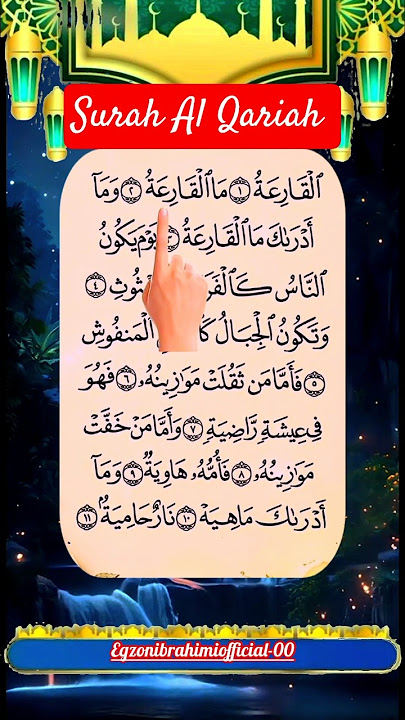 Surah Al Qariah
ٱلْقَارِعَةُ ١ مَا ٱلْقَارِعَةُ ٢ وَمَآ
أَدْرَىٰكَ مَا ٱلْقَارِعَةُ يَوْمَ يَكُونُ
ٱلنَّاسُ كَٱلْفَرَ ثُوثِ ٤
وَتَكُونُ ٱلْجِبَالُ كَٱ ٱلْمَنفُوشِ
٥ فَأَمَّا مَن ثَقُلَتْ مَوَٰزِينُهُۥ ٦ فَهُوَ
فِى عِيشَةٍ رَّاضِيَةٍ ٧ وَأَمَّا مَنْ خَفَّتْ
مَوَٰزِينُهُۥ ٨ فَأُمُّهُۥ هَاوِيَةٌ ٩ وَمَآ
أَدْرَىٰكَ مَا هِيَهْ ١٠ نَارٌ حَامِيَةٌۢ ١١
Egzonibrahimiofficial-00